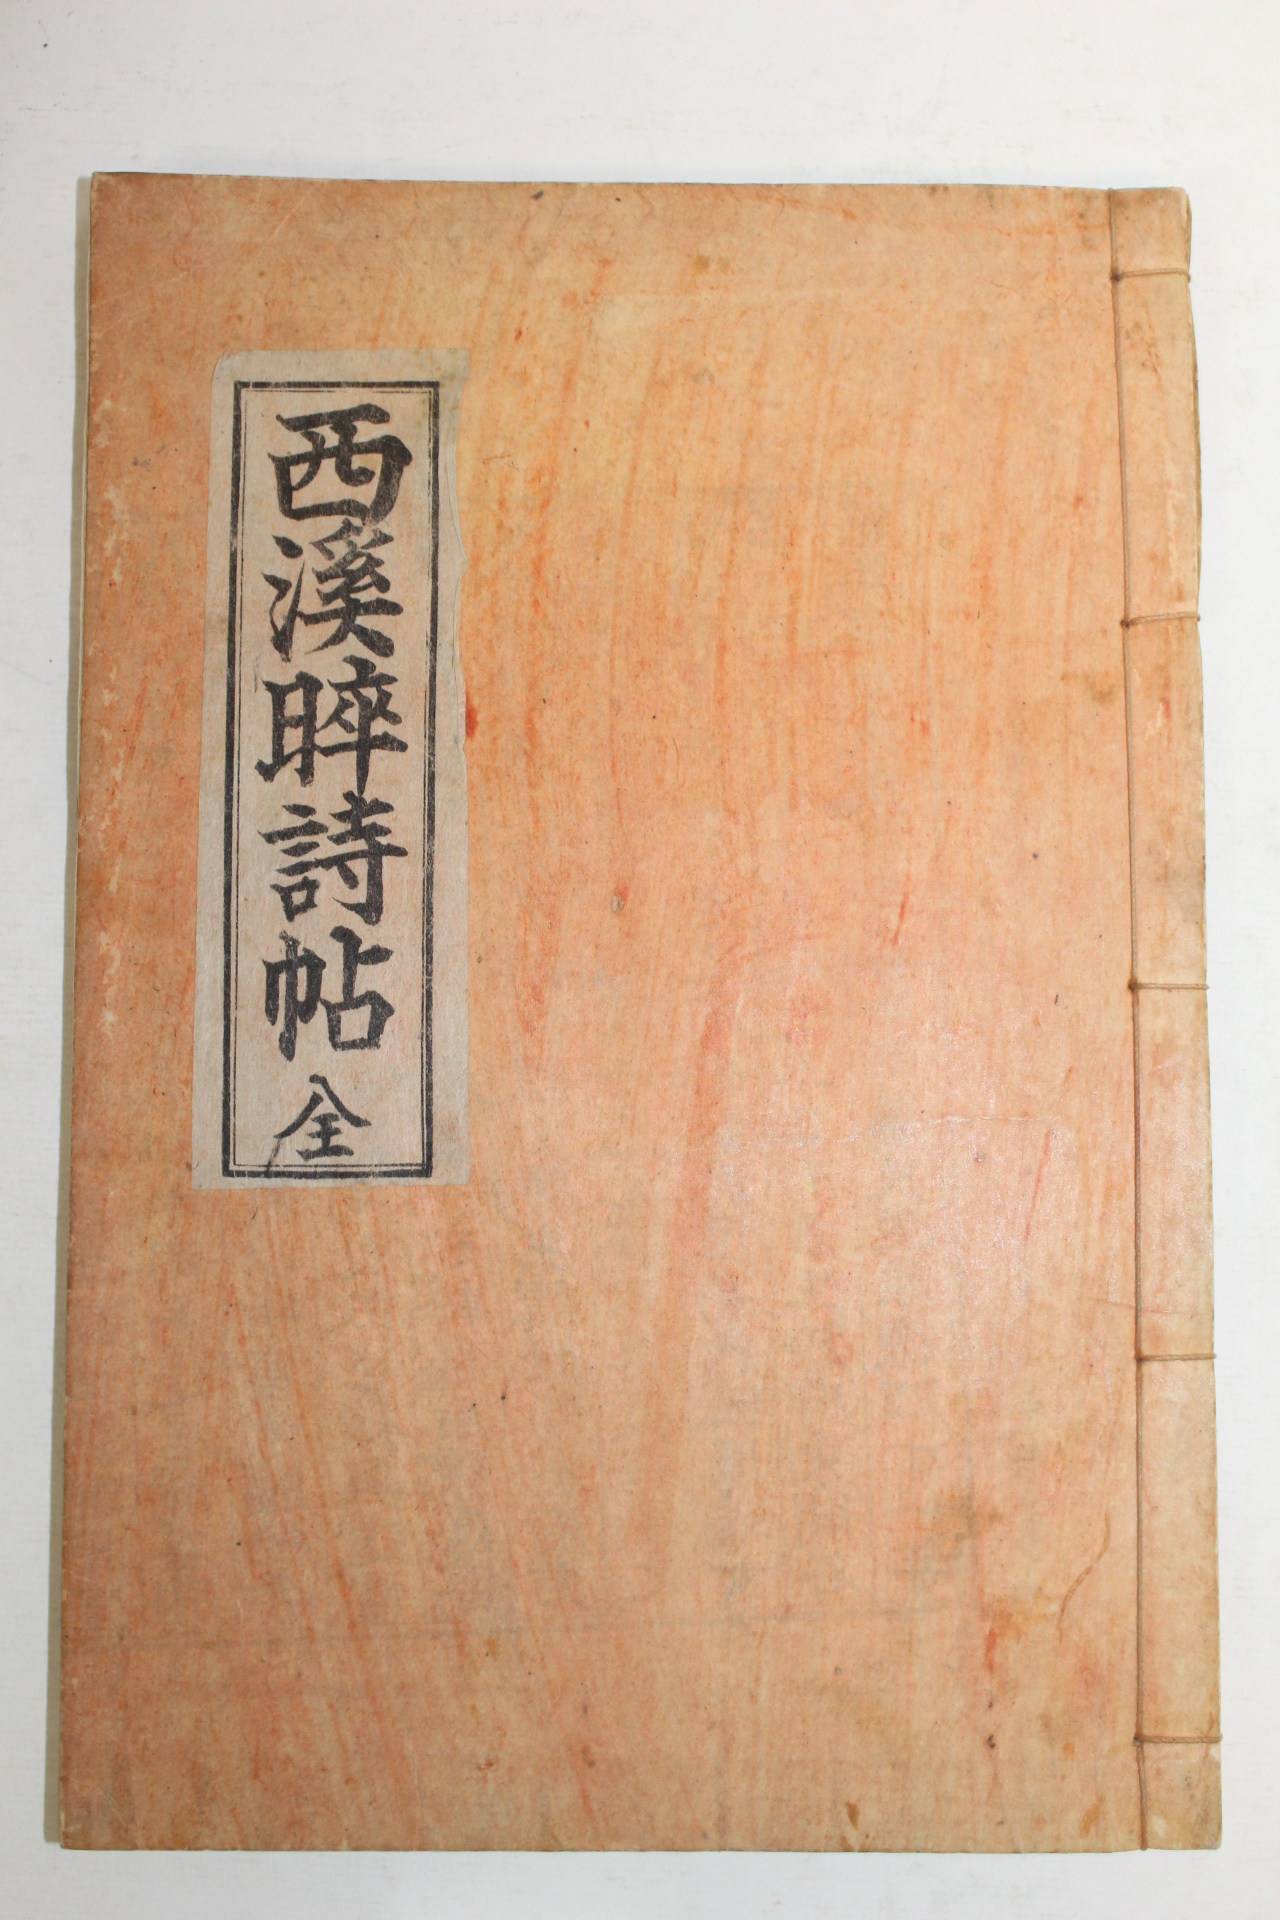 西溪晬詩帖 全